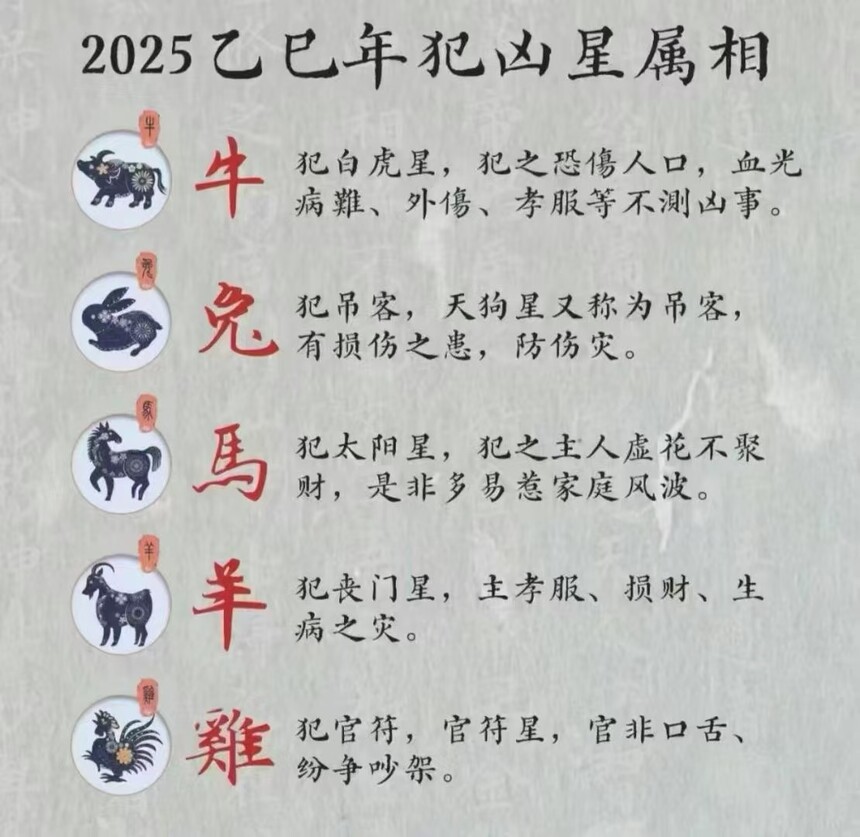 2025乙巳年犯凶星属相
牛
牛
犯白虎星，犯之恐傷人口，血光
病難、外傷、孝服等不測凶事。
兔
兔
犯吊客，天狗星又称为吊客，
有损伤之患，防伤灾。
馬
馬
犯太阳星，犯之主人虚花不聚
财，是非多易惹家庭风波。
羊
羊
犯丧门星，主孝服、损财、生
病之灾。
雞
雞
犯官符，官符星，官非口舌、
纷争吵架。